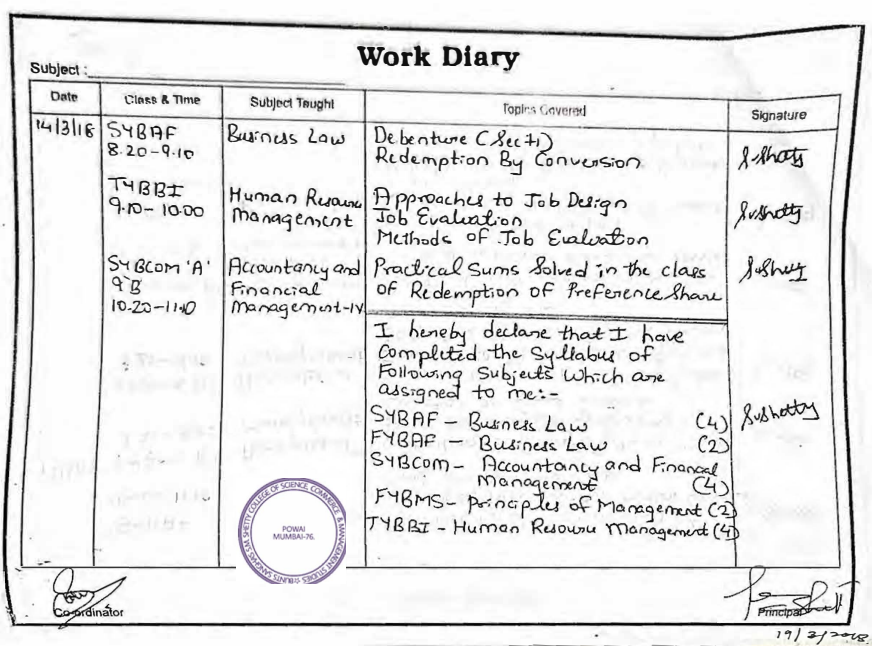 Work Diary
Subject :
Date Class & Time Subject Taught Topics Covered Signature
14/3/18 SYBAF Business Law Debenture (Sec 71)
8.20-9.10 Redemption By Conversion
TYBBI Human Resource Approaches to Job Design
9.10-10.00 Management Job Evaluation
Methods of Job Evaluation
SYBCOM 'A' Accountancy and Practical Sums Solved in the class
9 B Financial of Redemption of Preference Share
10.20-11.10 Management-IV
I hereby declare that I have
Completed the Syllabus of
Following Subjects Which are
assigned to me:-
SYBAF - Business Law (4)
FYBAF - Business Law (2)
SYBCOM - Accountancy and Financial
Management (4)
FYBMS - Principles of Management (2)
TYBBI - Human Resource Management (4)
BUNTS SANGHA'S S.M. SHETTY COLLEGE OF SCIENCE, COMMERCE & MANAGEMENT STUDIES
POWAI
MUMBAI-76.
Co-ordinator Principal
19/3/2018